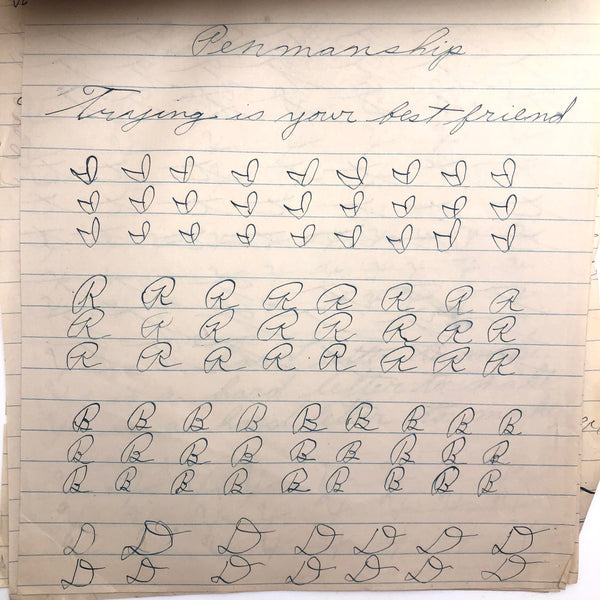 Penmanship
Trying is your best friend
R R R R R R R R
R R R R R R R R
R R R R R R R R
B B B B B B B B B
B B B B B B B B B
B B B B B B B B B
D D D D D D D
D D D D D D D